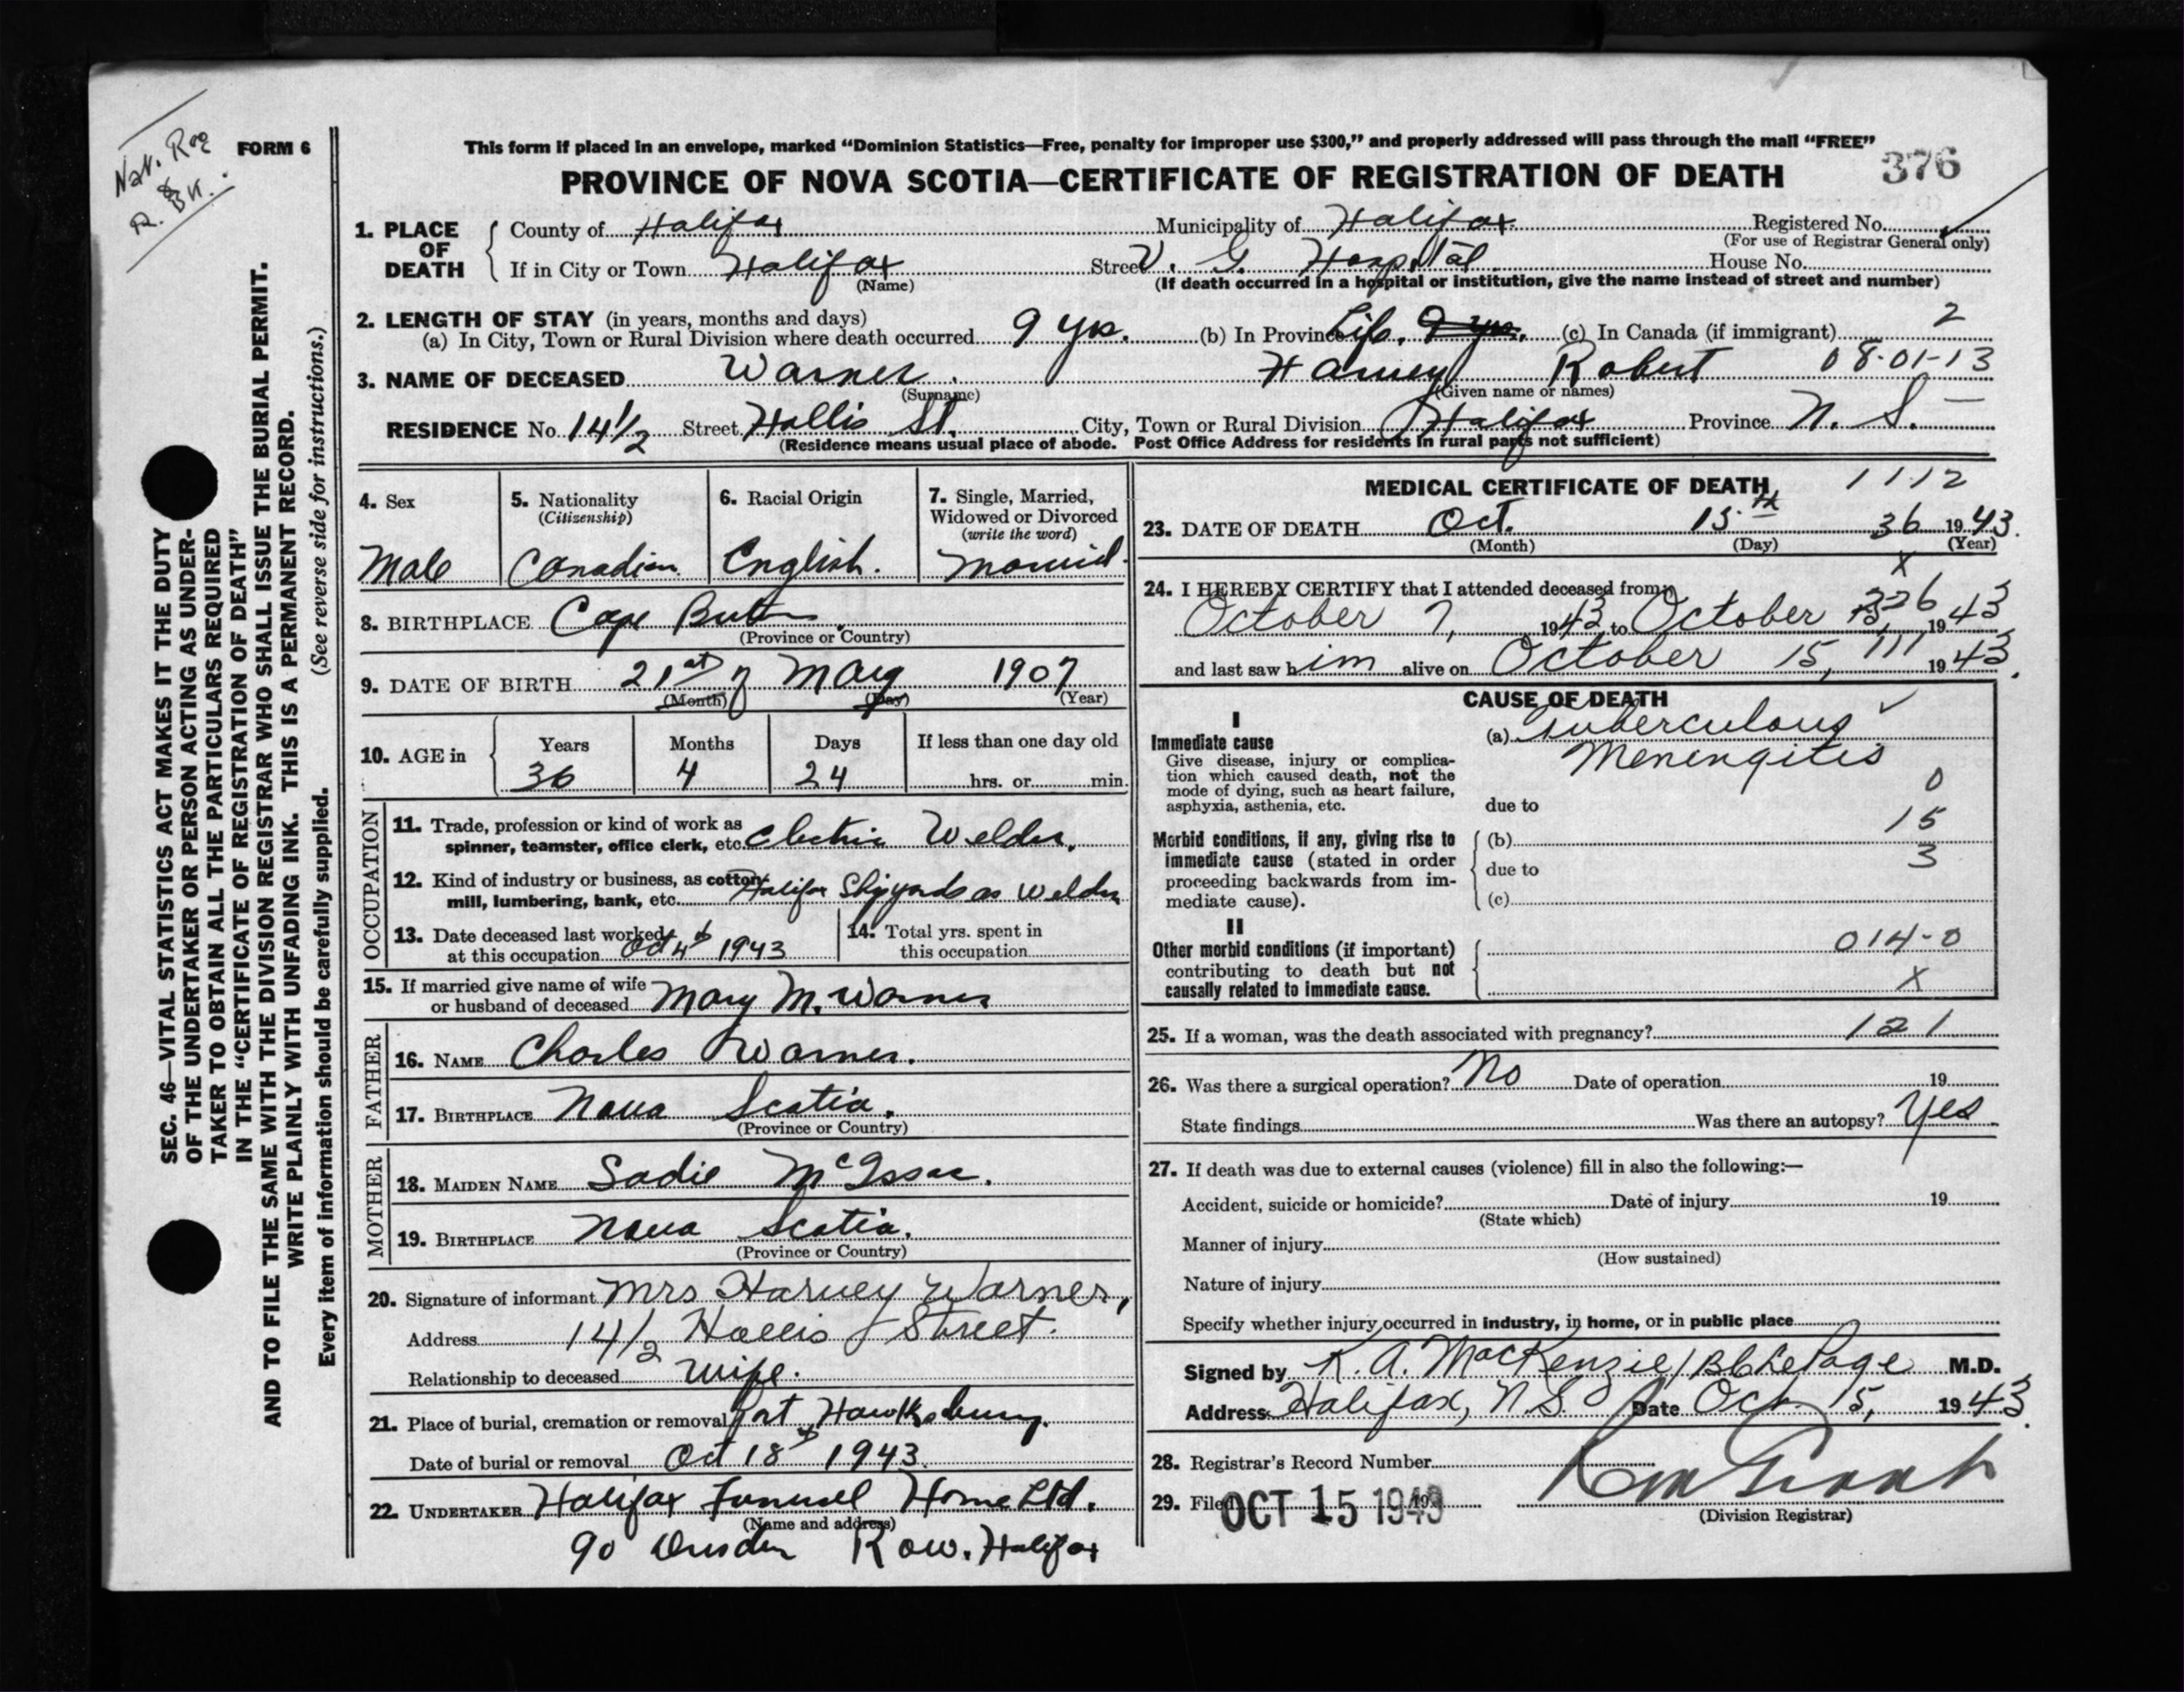 Nat. Reg
& BK.
R.
FORM 6
This form if placed in an envelope, marked “Dominion Statistics—Free, penalty for improper use $300,” and properly addressed will pass through the mail “FREE”
PROVINCE OF NOVA SCOTIA—CERTIFICATE OF REGISTRATION OF DEATH 376
1. PLACE OF DEATH County of Halifax Municipality of Halifax. Registered No.
(For use of Registrar General only)
If in City or Town Halifax Street V. G. Hospital House No.
(Name) (If death occurred in a hospital or institution, give the name instead of street and number)
2. LENGTH OF STAY (in years, months and days) 2
(a) In City, Town or Rural Division where death occurred 9 yrs. (b) In Province Life. 9 yrs. (c) In Canada (if immigrant)
3. NAME OF DECEASED Warner. Harvey Robert 08-01-13
(Surname) (Given name or names)
RESIDENCE No. 14½ Street Hollis St. City, Town or Rural Division Halifax Province N. S.
(Residence means usual place of abode. Post Office Address for residents in rural parts not sufficient)
4. Sex
Male
5. Nationality
(Citizenship)
Canadian
6. Racial Origin
English.
7. Single, Married,
Widowed or Divorced
(write the word)
Married
8. BIRTHPLACE Cape Breton
(Province or Country)
9. DATE OF BIRTH 21st of May 1907
(Month) (Day) (Year)
10. AGE in Years Months Days If less than one day old
36 4 24 hrs. or min.
OCCUPATION
11. Trade, profession or kind of work as
spinner, teamster, office clerk, etc. Electric Welder.
12. Kind of industry or business, as cotton
mill, lumbering, bank, etc. Halifax Shipyards as Welder
13. Date deceased last worked
at this occupation Oct 4th 1943
14. Total yrs. spent in
this occupation
15. If married give name of wife
or husband of deceased Mary M. Warner
FATHER
16. NAME Charles Warner.
17. BIRTHPLACE Nova Scotia.
(Province or Country)
MOTHER
18. MAIDEN NAME Sadie McIssac.
19. BIRTHPLACE Nova Scotia.
(Province or Country)
20. Signature of informant Mrs Harvey Warner,
Address 14½ Hollis Street.
Relationship to deceased Wife.
21. Place of burial, cremation or removal Port Hawksbury.
Date of burial or removal Oct 18th 1943.
22. UNDERTAKER Halifax Funeral Home Ltd.
(Name and address)
90 Dresden Row. Halifax
MEDICAL CERTIFICATE OF DEATH 1112
23. DATE OF DEATH Oct. 15th 36 1943.
(Month) (Day) (Year)
x
24. I HEREBY CERTIFY that I attended deceased from
October 7, 1943 to October 15, 326 1943
and last saw him alive on October 15, 111 1943.
CAUSE OF DEATH
I
Immediate cause
Give disease, injury or complica-
tion which caused death, not the
mode of dying, such as heart failure,
asphyxia, asthenia, etc.
(a) Tuberculous
Meningitis
0
due to
15
Morbid conditions, if any, giving rise to
immediate cause (stated in order
proceeding backwards from im-
mediate cause).
(b)
3
due to
(c)
II
Other morbid conditions (if important)
contributing to death but not
causally related to immediate cause.
014-0
X
25. If a woman, was the death associated with pregnancy? 121
26. Was there a surgical operation? No Date of operation 19
State findings Was there an autopsy? Yes
27. If death was due to external causes (violence) fill in also the following:—
Accident, suicide or homicide? Date of injury 19
(State which)
Manner of injury
(How sustained)
Nature of injury
Specify whether injury occurred in industry, in home, or in public place
Signed by K. A. MacKenzie/ LePage M.D.
Address Halifax, N.S. Date Oct. 15, 1943.
28. Registrar's Record Number
29. Filed OCT 15 1943 19
(Division Registrar)
SEC. 46—VITAL STATISTICS ACT MAKES IT THE DUTY
OF THE UNDERTAKER OR PERSON ACTING AS UNDER-
TAKER TO OBTAIN ALL THE PARTICULARS REQUIRED
IN THE “CERTIFICATE OF REGISTRATION OF DEATH”
AND TO FILE THE SAME WITH THE DIVISION REGISTRAR WHO SHALL ISSUE THE BURIAL PERMIT.
WRITE PLAINLY WITH UNFADING INK. THIS IS A PERMANENT RECORD.
Every item of information should be carefully supplied. (See reverse side for instructions.)